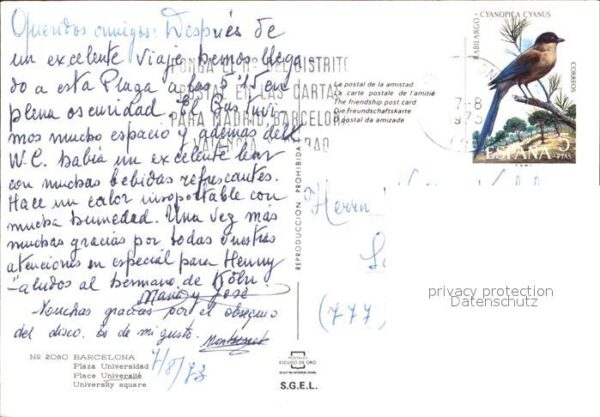 Queridos amigos: Después de
un excelente viaje hemos llega
do a esta Plaza a las 8'15 en
plena oscuridad. El Bus tuvi
mos mucho espacio y además del
W.C. había un excelente bar
con muchas bebidas refrescantes.
Hace un calor insoportable con
mucha humedad. Una vez mas
muchas gracias por todas vuestras
atenciones en especial para Henny
Saludos al hermano de Köln!
Mario y José
Muchas gracias por el obsequio
del disco. es de mi gusto. Montserrat
7/8/73
Nº 2080 BARCELONA
Plaza Universidad
Place Université
University square
REPRODUCCION PROHIBIDA
POSTALES
ESCUDO DE ORO
S.G.E.L.
PONGA EL Nº DEL DISTRITO
POSTAL EN LAS CARTAS
PARA MADRID BARCELONA
VALENCIA BILBAO
La postal de la amistad
La carte postale de l'amitié
The friendship post card
Die Freundschaftskarte
O postal da amizade
RABILARGO
CYANOPICA CYANUS
CORREOS
ESPAÑA 5 PTAS
Herrn
(777)
privacy protection
Datenschutz